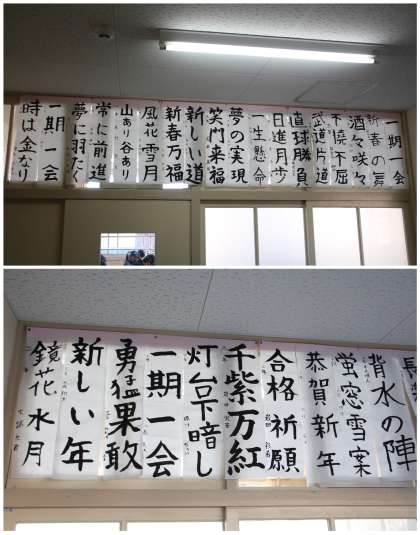 一期一会
新春の舞
酒々咲々
不撓不屈
武道片道
直球勝負
日進月歩
一生懸命
夢の実現
笑門来福
新しい道
新春万福
風花雪月
山あり谷あり
常に前進
夢に羽たく
一期一会
時は金なり
背水の陣
蛍窓雪案
恭賀新年
合格祈願
千紫万紅
灯台下暗し
一期一会
勇猛果敢
新しい年
鏡花水月